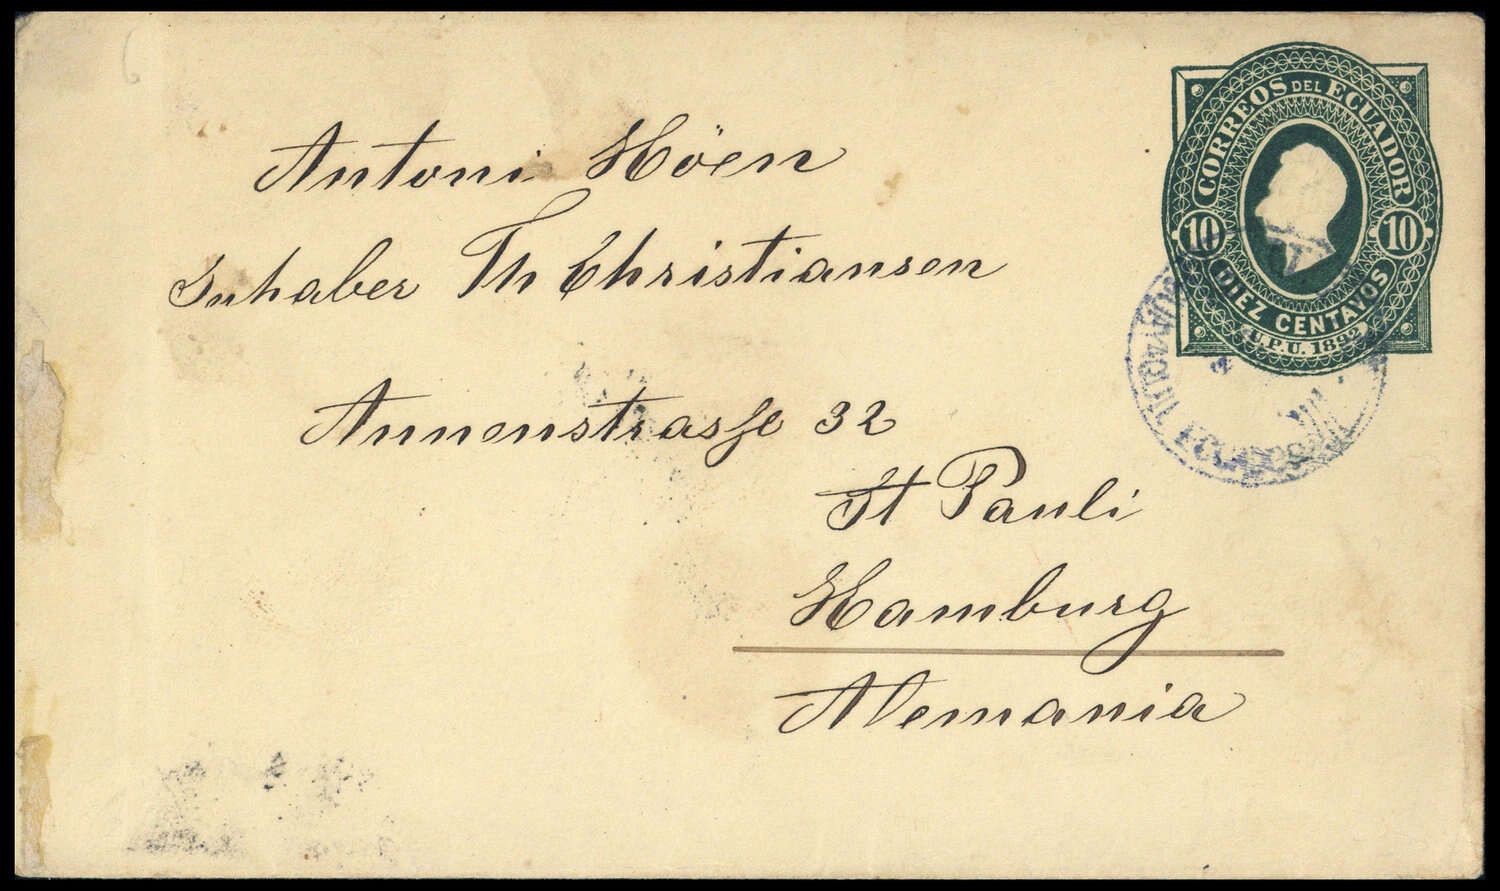 CORREOS DEL ECUADOR
10 10
DIEZ CENTAVOS
U.P.U. 1892
Antoni Höen
Inhaber Th Christiansen
Annenstrasse 32
St Pauli
Hamburg
Alemania